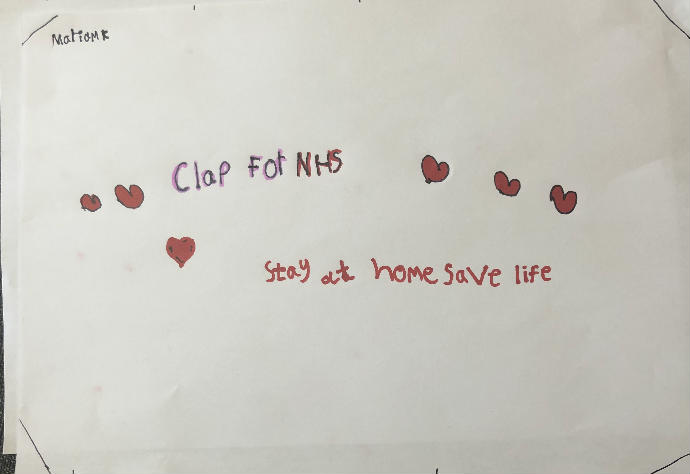 MatiamK
Clap For NHS
Stay at home save life